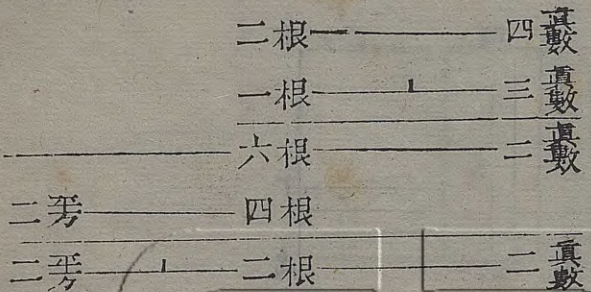 二根 四眞數
一根 三眞數
六根 二眞數
二平方 四根
二平方 二根 二眞數